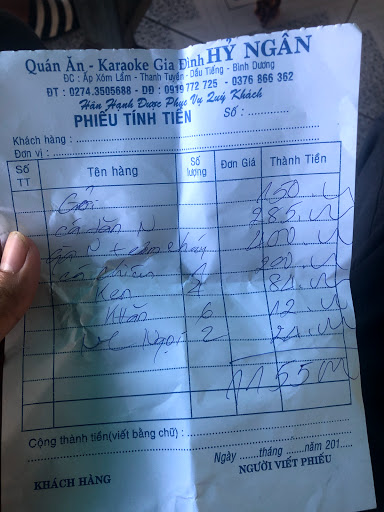 Quán Ăn - Karaoke Gia Đình HỶ NGÂN
ĐC : Ấp Xóm Lẫm - Thanh Tuyền - Dầu Tiếng - Bình Dương
ĐT : 0274.3505688 - DĐ : 0919 772 725 - 0376 866 362
Hân Hạnh Được Phục Vụ Quý Khách
PHIẾU TÍNH TIỀN Số :
Khách hàng :
Đơn vị :
Số TT Tên hàng Số lượng Đơn Giá Thành Tiền
Gỏi 150
285
200
Ken 4
Khăn 6 12
Ngọt 2
1155
Cộng thành tiền(viết bằng chữ) :
Ngày tháng năm 201
KHÁCH HÀNG NGƯỜI VIẾT PHIẾU